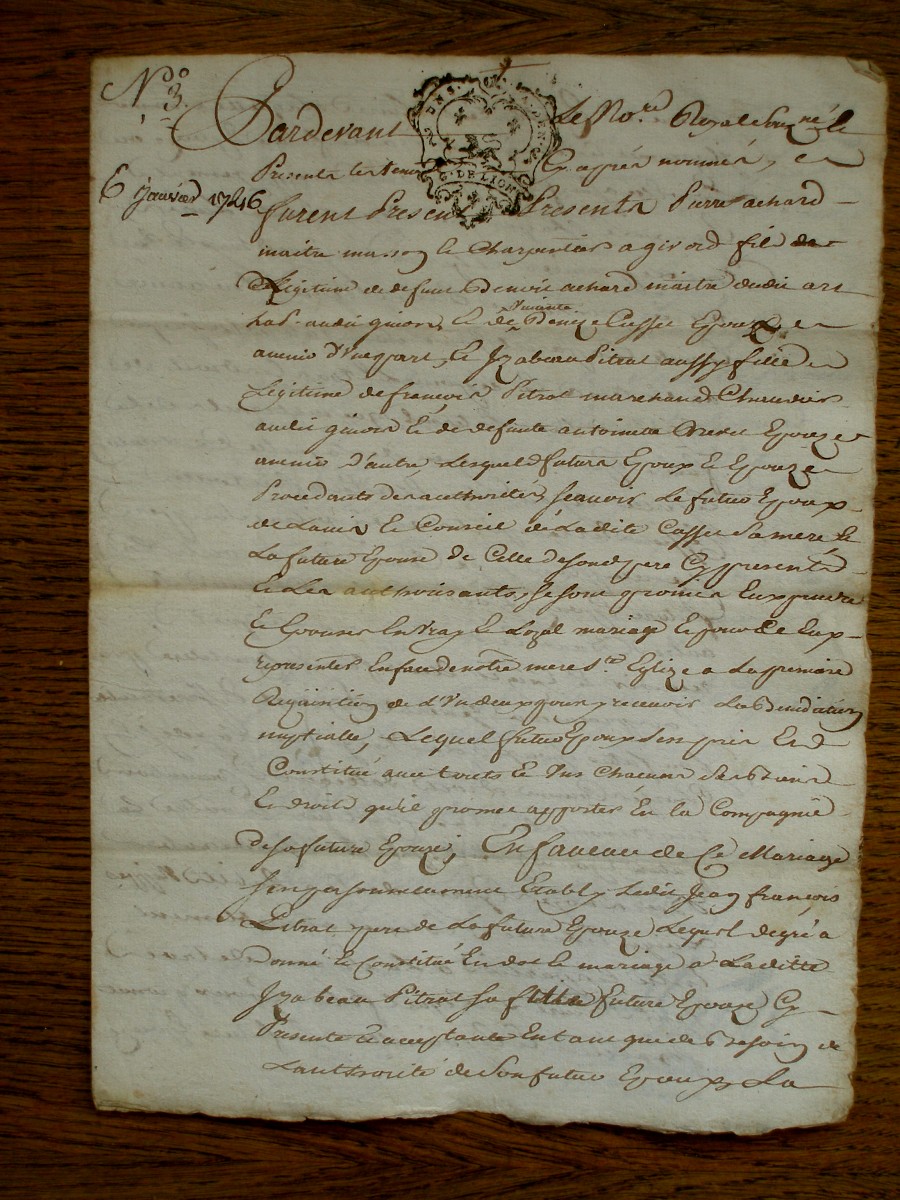 N.o 3.
Pardevant Le No.re Royal soussigné &
G. DE LION
Presents les temoins Cy après nommés,
6 janvier 1746
furent Presents Pierre achard
maitre masson & Charpentier a givord fils
Legitime de defunt Benoit achard maitre dudit art
audit givors, & de vivante Denize Casset Epouze
d'Unepart, & Izabeau Pitrat aussy fille
Legitime de françois Pitrat marchand
audit givors & de defunte antoinette Epouze
d'autre, Lesquels futurs Epoux & Epouze
Procedants des authorités, sçavoir Le futur Epoux
de Lavis & Conseil de Ladite Casset Sa mere &
La future Epouse de Celle desondt pere Cy presents
& Les authorisants, se sont promis
& Epouser En vray & Loyal mariage &
representer En face de notre mere ste Eglize a La premiere
Requisition de L'Un deux pour y recevoir La Benediction
nuptialle, Lequel futur Epoux
Constitué aux & Uns Chacuns Ses Biens
& droits qu'il promet apporter En La Compagnie
de sa future Epouze, En faveur de Ce Mariage
s'en personnellement Etably Ledit Jean françois
Pitrat pere de La future Epouze Lequel de gré a
Donné & Constitué En dot & mariage a Laditte
Izabeau Pitrat sa fille future Epouze Cy
Presente & acceptante Entant que de Besoin de
Lauthorité de Son futur Epoux, La